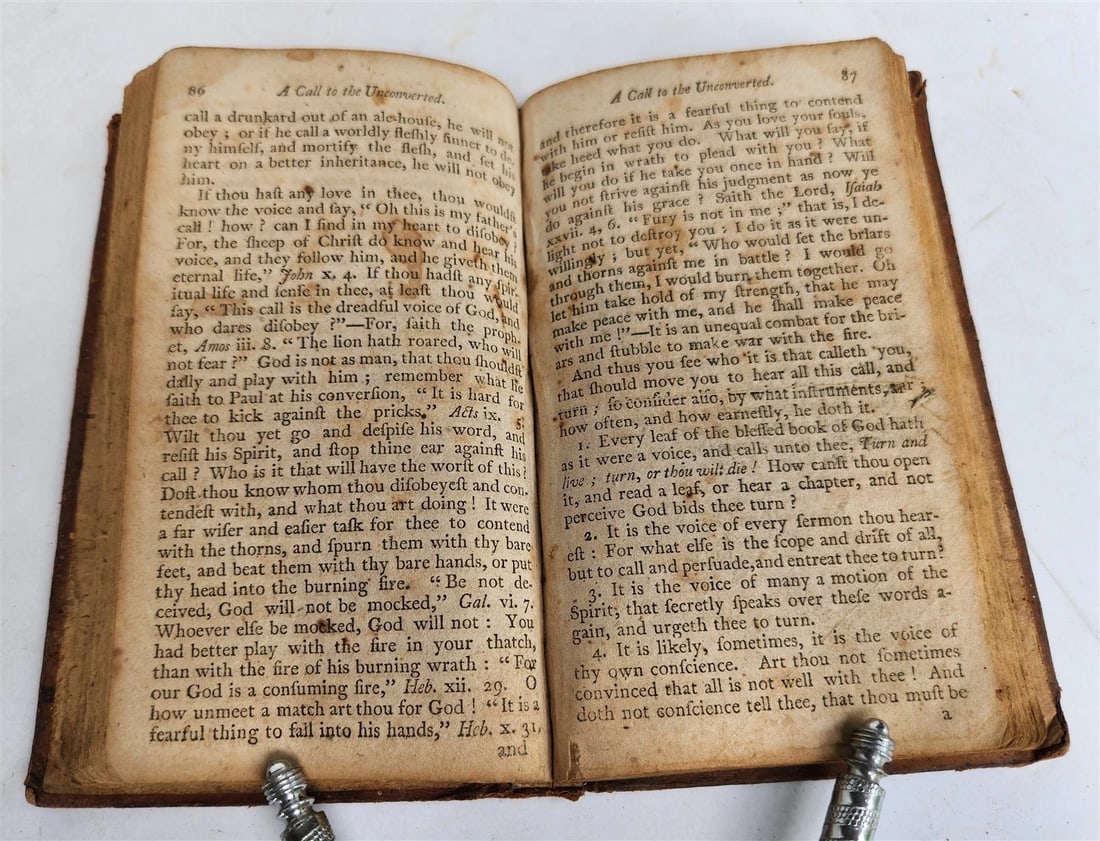 86
A Call to the Unconverted.
call a drunkard out of an ale-houſe, he will not
obey ; or if he call a worldly fleſhly ſinner to de-
ny himſelf, and mortify the fleſh, and ſet his
heart on a better inheritance, he will not obey
him.
If thou haſt any love in thee, thou wouldſt
know the voice and ſay, “ Oh this is my father's
call ! how ? can I find in my heart to diſobey ?
For, the ſheep of Chriſt do know and hear his
voice, and they follow him, and he giveth them
eternal life,” John x. 4. If thou hadſt any ſpir-
itual life and ſenſe in thee, at leaſt thou would
ſay, “ This call is the dreadful voice of God, and
who dares diſobey ?”—For, ſaith the proph-
et, Amos iii. 8. “ The lion hath roared, who will
not fear ?” God is not as man, that thou ſhouldſt
dally and play with him ; remember what he
ſaith to Paul at his converſion, “ It is hard for
thee to kick againſt the pricks.” Acts ix. 5.
Wilt thou yet go and deſpiſe his word, and
reſiſt his Spirit, and ſtop thine ear againſt his
call ? Who is it that will have the worſt of this ?
Doſt thou know whom thou diſobeyeſt and con.
tendeſt with, and what thou art doing ! It were
a far wiſer and eaſier taſk for thee to contend
with the thorns, and ſpurn them with thy bare
feet, and beat them with thy bare hands, or put
thy head into the burning fire. “ Be not de-
ceived, God will not be mocked,” Gal. vi. 7.
Whoever elſe be mocked, God will not : You
had better play with the fire in your thatch,
than with the fire of his burning wrath : “ For
our God is a conſuming fire,” Heb. xii. 29. O
how unmeet a match art thou for God ! “ It is a
fearful thing to fall into his hands,” Heb. x. 31,
and
A Call to the Unconverted.
87
and therefore it is a fearful thing to contend
with him or reſiſt him. As you love your ſouls,
take heed what you do. What will you ſay, if
he begin in wrath to plead with you ? What
will you do if he take you once in hand ? Will
you not ſtrive againſt his judgment as now ye
do againſt his grace ? Saith the Lord, Iſaiah
xxvii. 4, 6. “ Fury is not in me ;” that is, I de-
light not to deſtroy you : I do it as it were un-
willingly ; but yet, “ Who would ſet the briars
and thorns againſt me in battle ? I would go
through them, I would burn them together. Oh
let him take hold of my ſtrength, that he may
make peace with me, and he ſhall make peace
with me !”—It is an unequal combat for the bri-
ars and ſtubble to make war with the fire.
And thus you ſee who it is that calleth you,
that ſhould move you to hear all this call, and
turn ; ſo conſider alſo, by what inſtruments, and
how often, and how earneſtly, he doth it.
1. Every leaf of the bleſſed book of God hath
as it were a voice, and calls unto thee, Turn and
live ; turn, or thou wilt die ! How canſt thou open
it, and read a leaf, or hear a chapter, and not
perceive God bids thee turn ?
2. It is the voice of every ſermon thou hear-
eſt : For what elſe is the ſcope and drift of all,
but to call and perſuade, and entreat thee to turn ?
3. It is the voice of many a motion of the
Spirit, that ſecretly ſpeaks over theſe words a-
gain, and urgeth thee to turn.
4. It is likely, ſometimes, it is the voice of
thy own conſcience. Art thou not ſometimes
convinced that all is not well with thee ! And
doth not conſcience tell thee, that thou muſt be
a